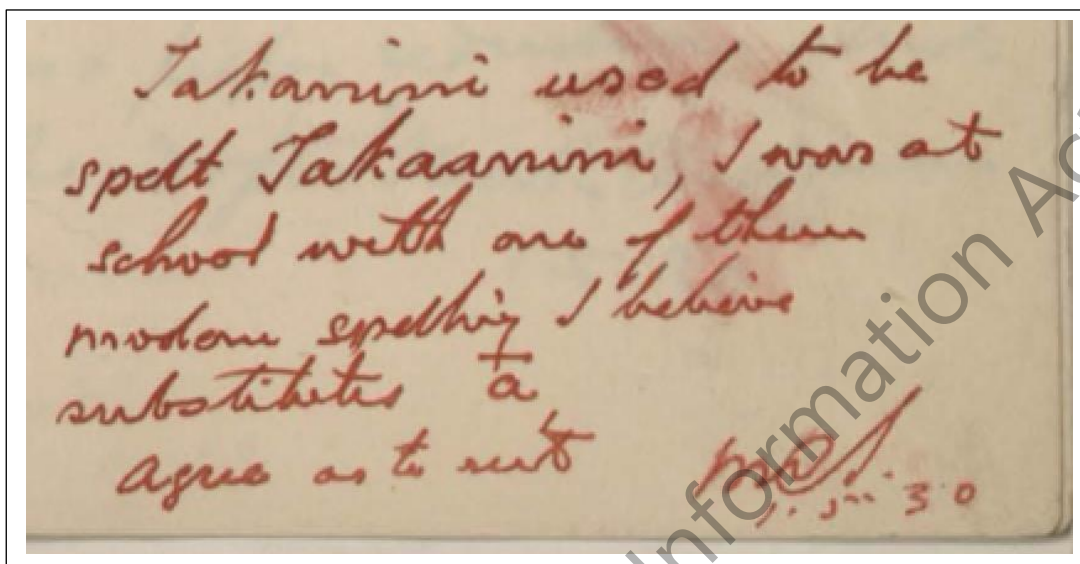 Takanini used to be
spelt Takaanini, I was at
school with one of them
modern spelling I believe
substitutes ā,
agree as to rest
30
Information Ac